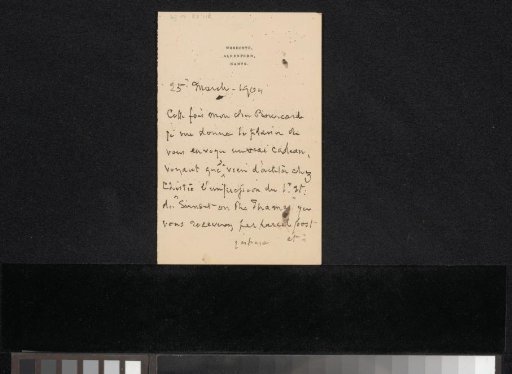 WOODCOTE,
ALRESFORD,
HANTS.
25th March - 1904
Cette fois mon cher Bouvicarde
je me donne le plaisir de
vous envoyer un vrai cadeau,
voyant que viens d'acheter chez
Christie l'impression du 1st St.
du "Sunset on the Thames" que
vous recevrez par parcel post
et